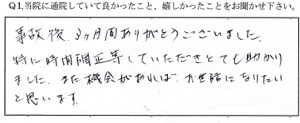 Q1.当院に通院していて良かったこと、嬉しかったことをお聞かせ下さい。
事故後、3ヶ月間ありがとうございました。
特に時間調正等していただきとても助かり
ました。また機会があれば、お世話になりたい
と思います。